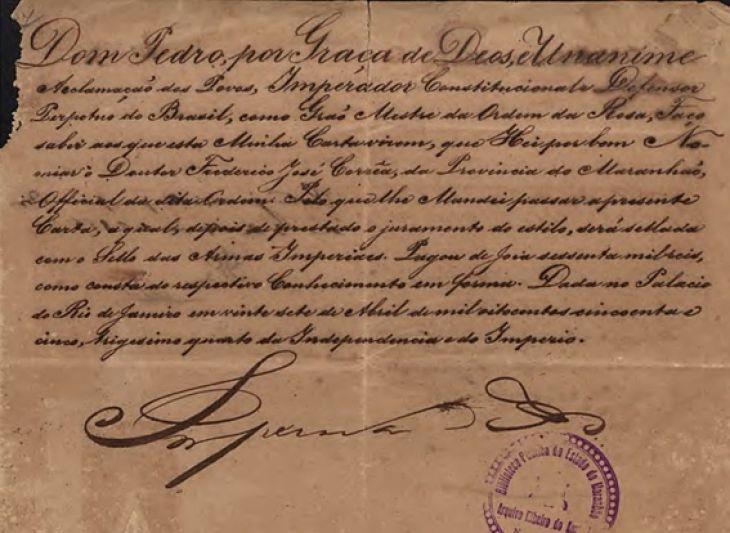 Dom Pedro, por Graça de Deos, e Unanime
Acclamação dos Povos, Imperador Constitucional e Defensor
Perpetuo do Brasil, como Grão Mestre da Ordem da Rosa, Faço
saber aos que esta Minha Carta virem, que Hei por bem No-
mear o Doutor Frederico José Corrêa, da Provincia do Maranhão,
Official da dita Ordem. Pelo que lhe Mandei passar a presente
Carta, a qual, depois de prestado o juramento do estilo, será sellada
com o Sello das Armas Imperiaes. Pagou de Joia sessenta mil reis,
como consta do respectivo Conhecimento em forma. Dada no Palacio
do Rio de Janeiro em vinte sete de Abril de mil oitocentos cincoenta e
cinco, trigesimo quarto da Independencia e do Imperio.
Imperador
Biblioteca Publica do Estado do Maranhão
Arquivo Ribeiro do